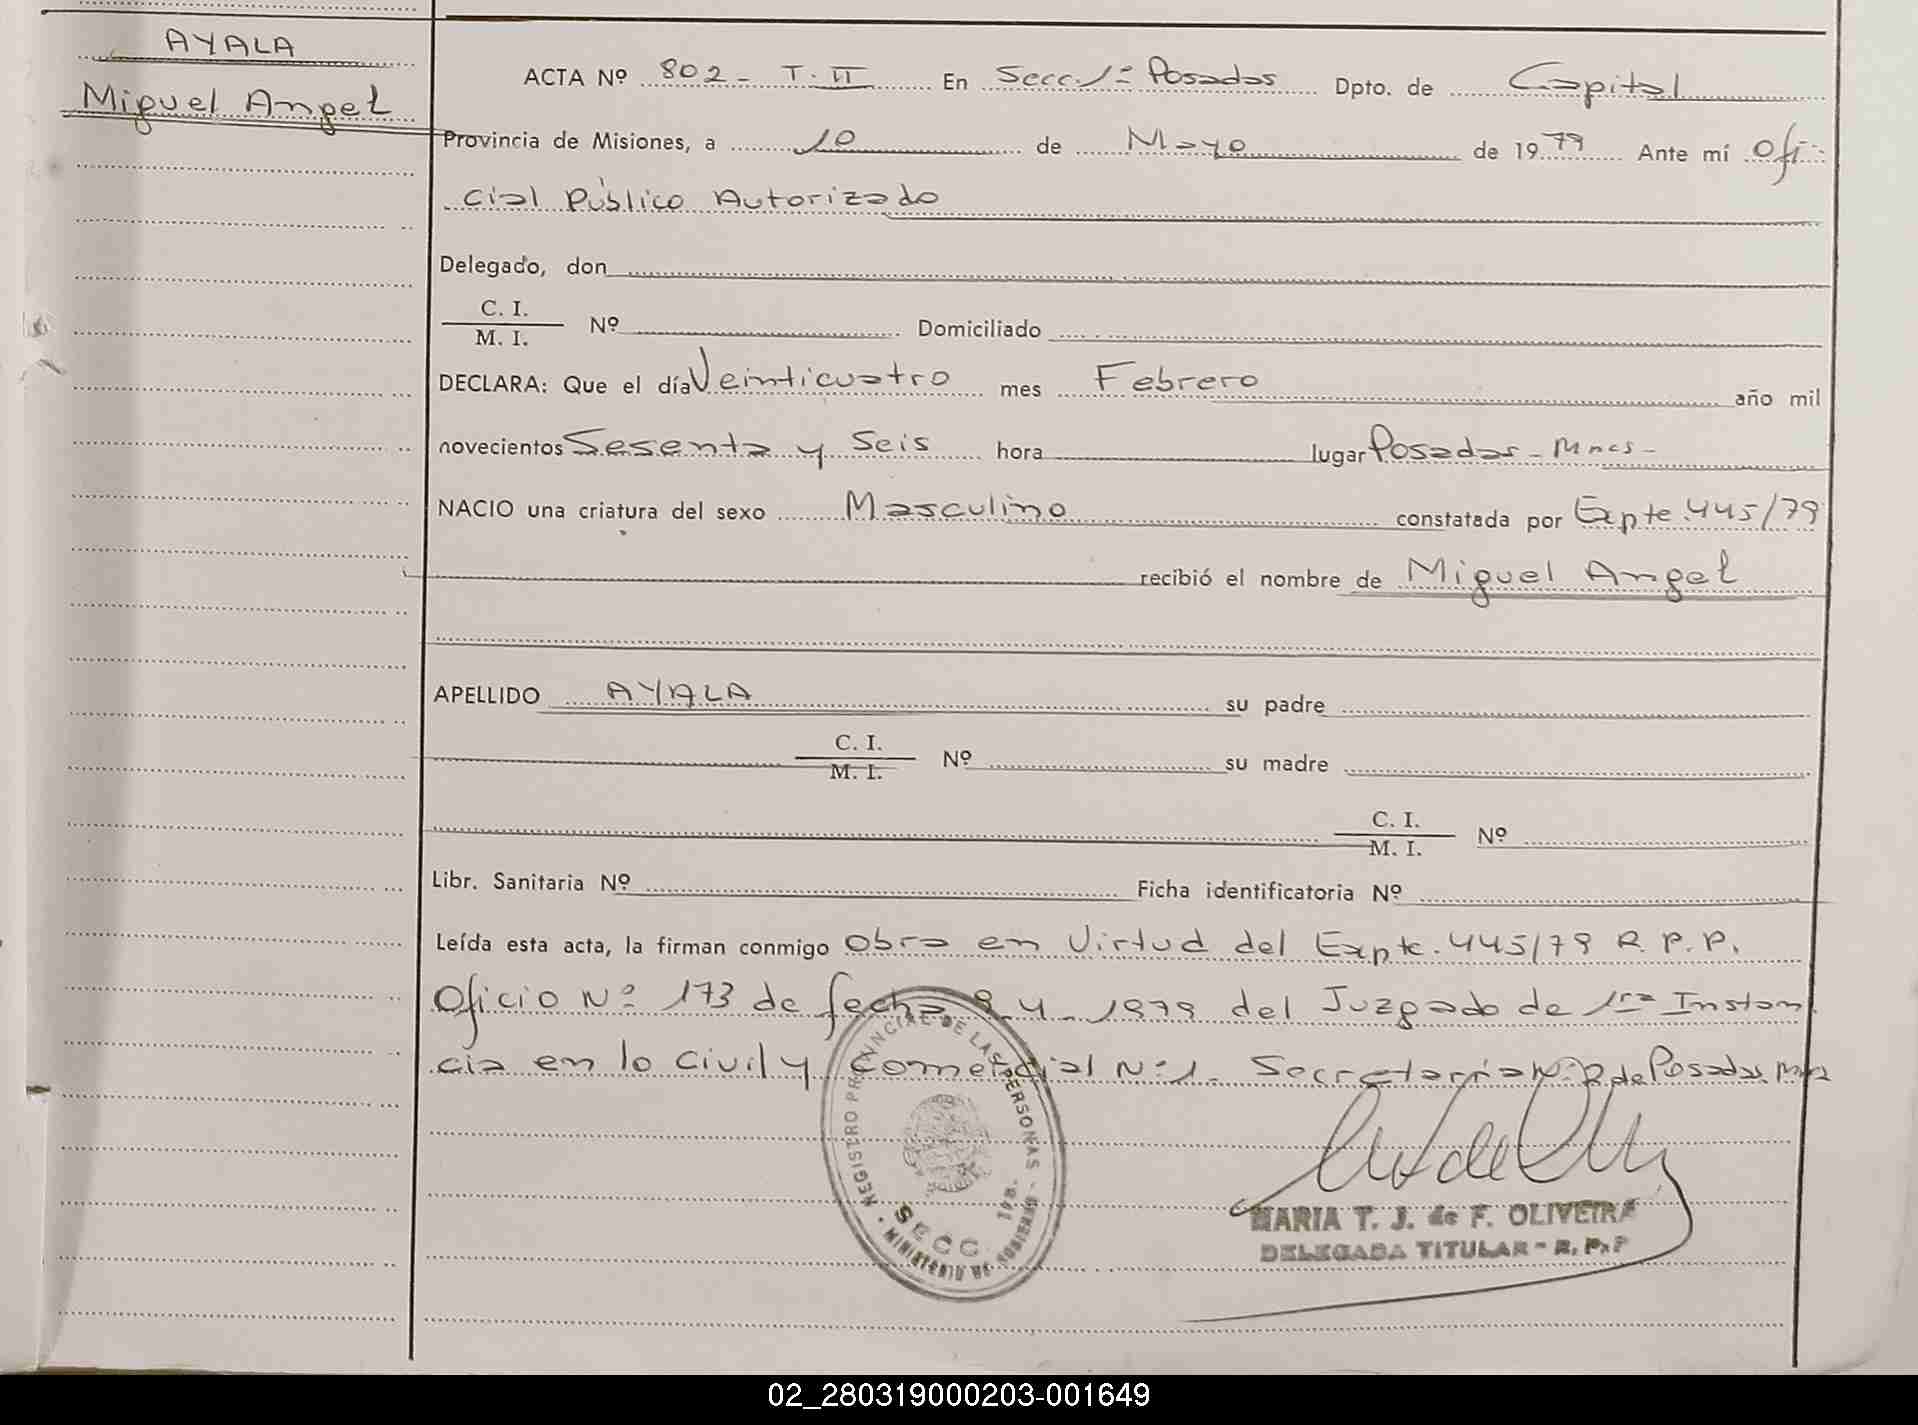 AYALA
Miguel Angel
ACTA Nº 802 - T. II En Secc. 1ª Posadas Dpto. de Capital
Provincia de Misiones, a 10 de Mayo de 1979 Ante mí Ofi-
cial Público Autorizado
Delegado, don
C. I.
M. I. Nº Domiciliado
DECLARA: Que el día Veinticuatro mes Febrero año mil
novecientos Sesenta y Seis hora lugar Posadas - Mnes -
NACIO una criatura del sexo Masculino constatada por Expte. 445/79
recibió el nombre de Miguel Angel
APELLIDO AYALA su padre
C. I.
M. I. Nº su madre
C. I.
M. I. Nº
Libr. Sanitaria Nº Ficha identificatoria Nº
Leída esta acta, la firman conmigo Obra en Virtud del Expte. 445/79 R. P. P.
Oficio Nº 173 de fecha 9-4-1979 del Juzgado de 1ra Instan
cia en lo Civil y Comercial Nº 1 - Secretaria Nº 2 de Posadas. Mnes
REGISTRO PROVINCIAL DE LAS PERSONAS - MINISTERIO DE GOBIERNO
SECC. 1ra.
MARIA T. J. de F. OLIVEIRA
DELEGADA TITULAR - R. P. P
02_280319000203-001649